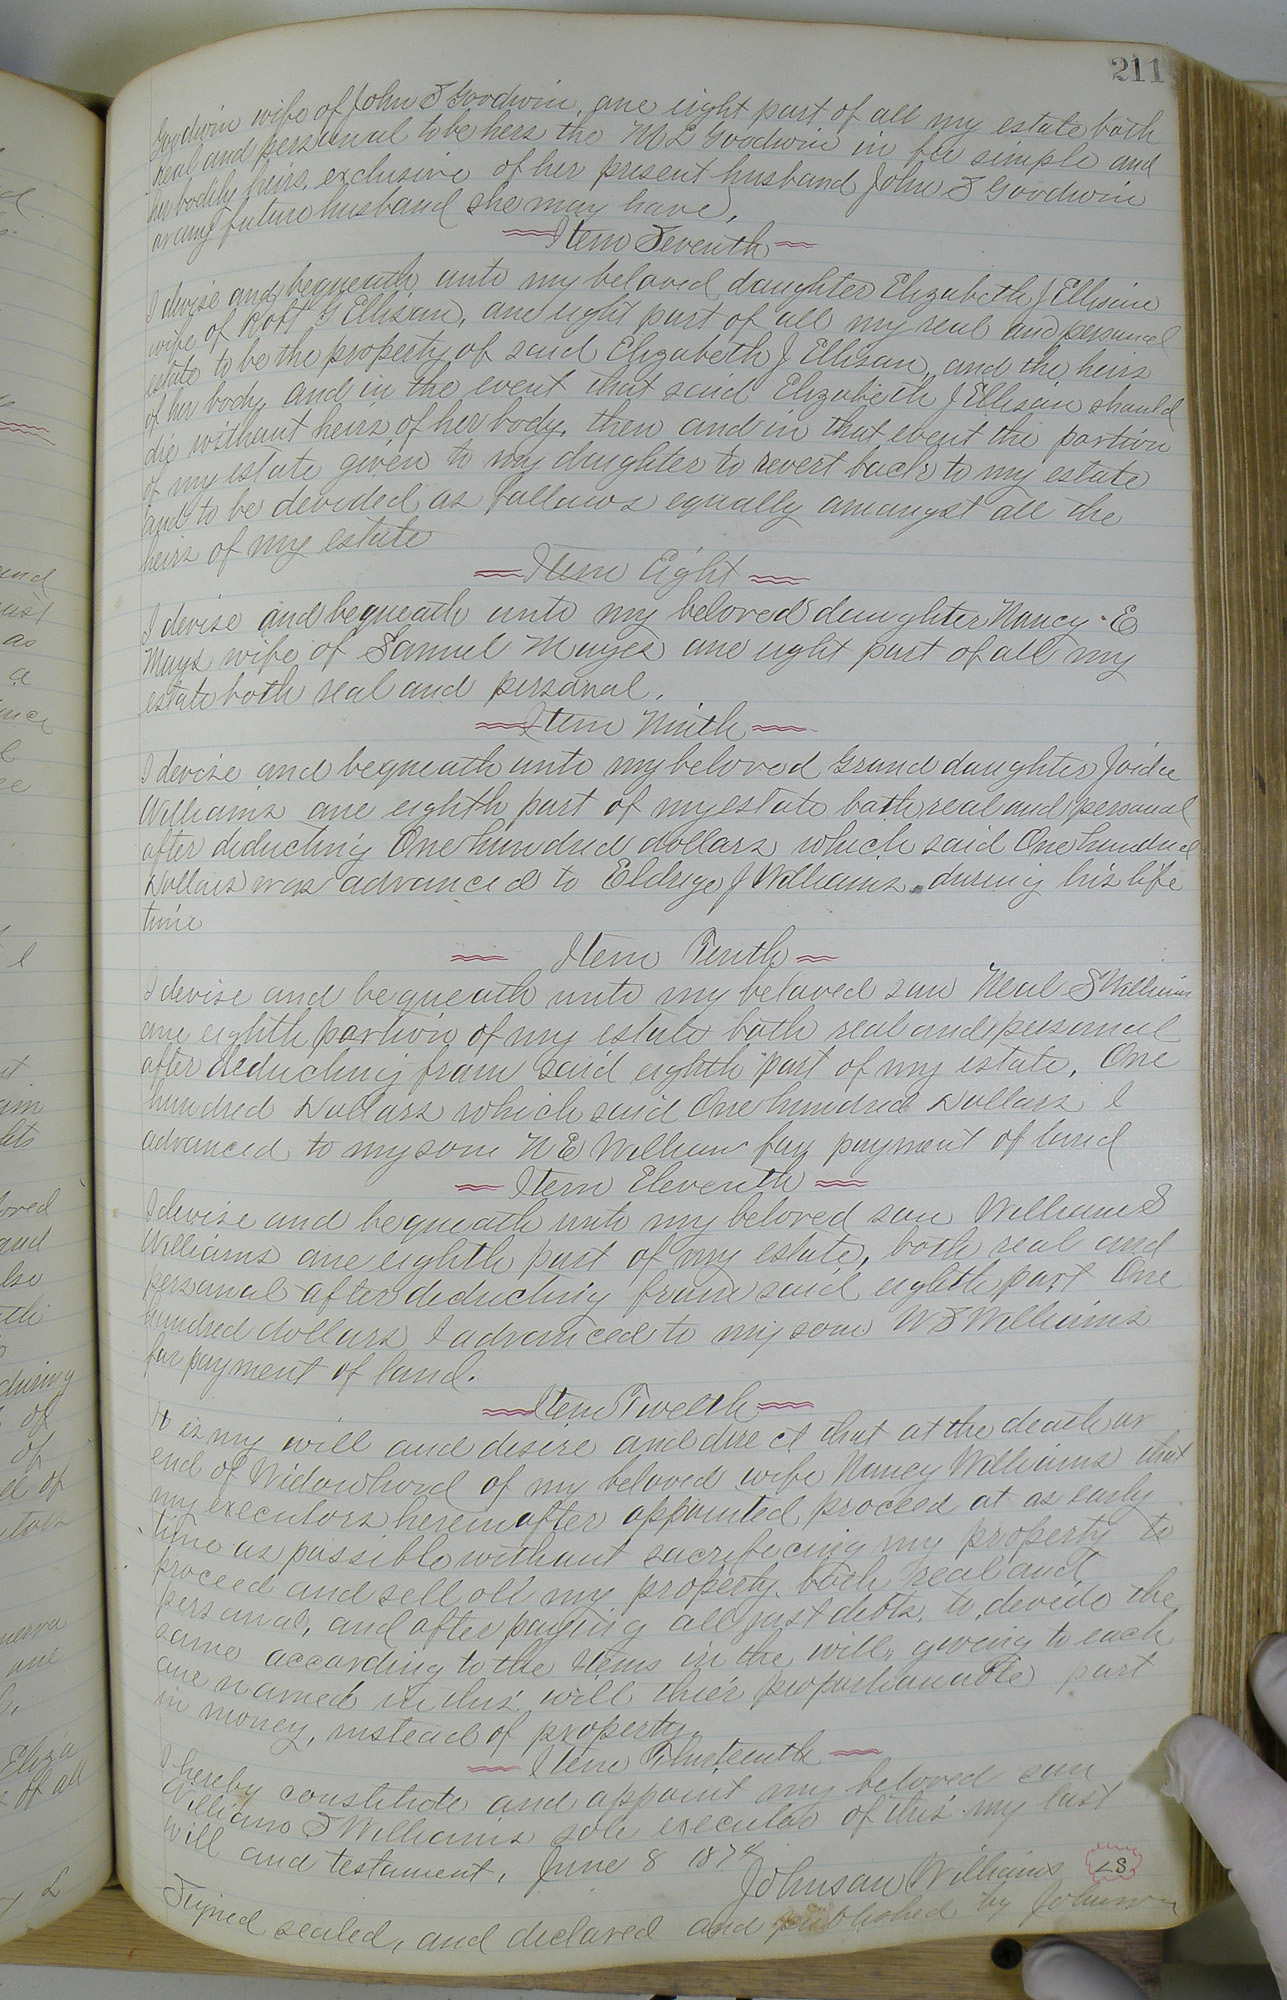 211
Goodwin wife of John T Goodwin, one eight part of all my estate both
real and personal to be hers the M L Goodwin in fee simple and
her bodily heirs, exclusive of her present husband John T Goodwin
or any future husband she may have,
Item Seventh
I devise and bequeath unto my beloved daughter Elizabeth J Ellison
wife of Robt G Ellison, one eight part of all my real and personal
estate to be the property of said Elizabeth J Ellison, and the heirs
of her body, and in the event that said Elizabeth J Ellison should
die without heirs of her body, then and in that event the portion
of my estate given to my daughter to revert back to my estate
and to be devided as follows equally amongst all the
heirs of my estate
Item Eight
I devise and bequeath unto my beloved daughter Nancy E
Mays wife of Samuel Mayes one eight part of all my
estate both real and personal.
Item Ninth
I devise and bequeath unto my beloved Grand daughter
Williams one eighth part of my estate both real and personal
after deducting One hundred dollars which said One hundred
Dollars was advanced to Eldrige J Williams during his life
time
Item Tenth
I devise and bequeath unto my beloved son Neal S Williams
one eighth portion of my estate both real and personal
after deducting from said eighth part of my estate, One
hundred Dollars which said One hundred Dollars I
advanced to my son N E William for payment of land
Item Eleventh
I devise and bequeath unto my beloved son William S
Williams one eighth part of my estate, both real and
personal after deducting from said eighth part One
hundred dollars I advanced to my son W S Williams
for payment of land.
Item Twelth
It is my will and desire and direct that at the death or
end of Widowhood of my beloved wife Nancy Williams that
my executors hereinafter appointed proceed at as early
time as possible without sacrificing my property to
proceed and sell all my property, both real and
personal, and after paying all just debts, to devide the
same according to the Items in the will, giving to each
one named in this will thier proportionable part
in money, instead of property,
Item Thirteenth
I hereby constitute and appoint my beloved son
William S Williams sole executor of this my last
will and testament, June 8 1874
Johnson Williams LS
Signed sealed, and declared and published by Johnson